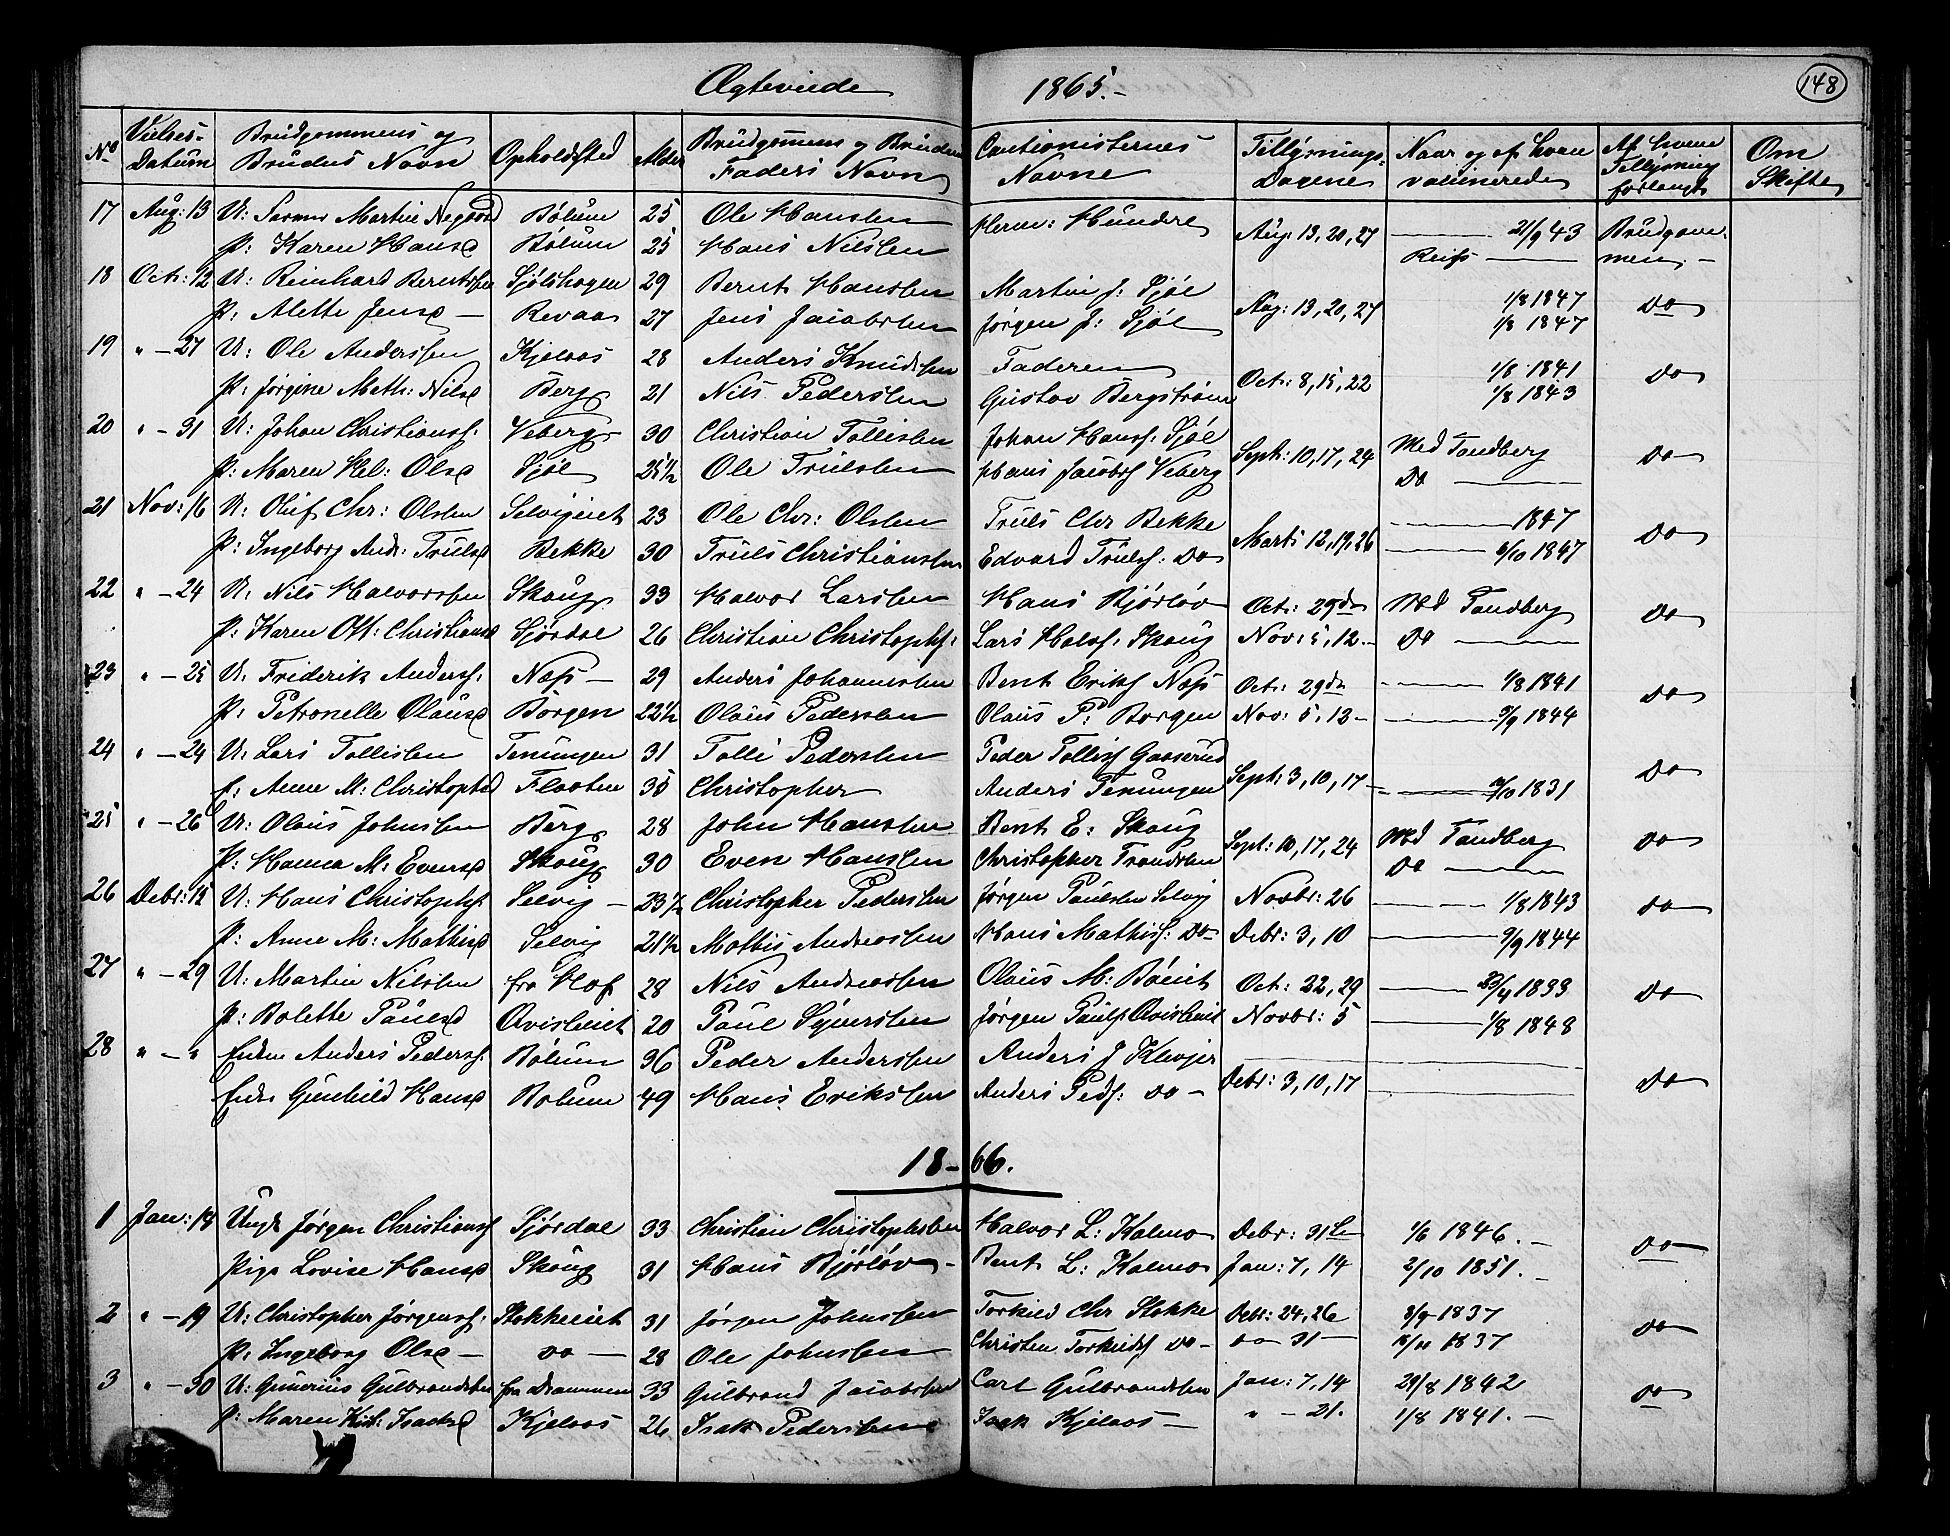 Ægteviede 1865.-
148
No Vielses-Datum Brudgommens og Brudens Navn Opholdsted Alder Brudgommens og Brudens Faders Navn Cautionisternes Navne Tillysnings-Dagene Naar og af hvem vaccinerede Af hvem Tillysning forlangt Om Skifte
17 Aug: 13 U: Martin Bølum 25 Ole Hansen Herm: Hundre Aug: 13, 20, 27 21/9 43 Brudgom-
P: Karen Hansd Bølum 25 Hans Nilsen Reiss men -
18 Oct: 12 U: Reinhard Berntsen Sjølshagen 29 Bernt Hansen Martin J: Sjøl Aug: 13, 20, 27 1/8 1847 Do
P: Alette Jensd - Revaa 27 Jens Jacobsen Jørgen J: Sjøl 1/8 1847
19 " - 27 U: Ole Anderssen Kjelaas 28 Anders Knudsen Faderen Oct: 8, 15, 22 1/8 1841 Do
P: Jørgine Math: Nilsd Berg 21 Nils Pedersen Gustav Bergstrøm 1/8 1843
20 " - 31 U: Johan Christianss: Veberg 30 Christian Tollissen Johan Hanss: Sjøl Sept: 10, 17, 24 Med Tandberg Do
P: Maren Hel: Olsd Sjøl 25 1/2 Ole Trulssen Hans Jacobss Veberg Do
21 Nov: 16 U: Oluf Chr: Olsen Selvigeiet 23 Ole Chr: Olsen Truls Chr Bekke Marts 12, 19, 26 1847 Do
P: Ingeborg Andr: Trulsd Bekke 30 Truls Christiansen Edvard Trulss: Do 6/10 1847
22 " - 24 U: Nils Halvorsen Skoug 33 Halvor Larsen Hans Bjørløv Oct: 29de Med Tandberg Do
P: Karen Ott: Christiansd Sjørdal 26 Christian Christophs: Lars Halvs: Skoug Nov: 5, 12 - Do
23 " - 25 U: Friderik Anderss: Næss - 29 Anders Johannesen Bent Erikss Næss Oct: 29de 1/8 1841 Do
P: Petronelle Olausd Borgen 22 1/2 Olaus Pedersen Olaus P: Borgen Nov: 5, 13 - 9/9 1844
24 " - 24 U: Lars Tollissen Tenungen 31 Tolli Pedersen Peder Tolliss Gasserud Sept: 3, 10, 17 - Do
f: Anne M: Christophd Flaaten 35 Christopher Anders Tenungen 1831
25 " - 26 U: Olaus Johnsen Berg 28 John Hansen Bent E: Skoug Sept: 10, 17, 24 Med Tandberg Do
P: Hanna M: Evensd Skoug 30 Even Hansen Christopher Trondsen Do
26 Debr: 15 U: Hans Christophs: Selvig - 23 1/2 Christopher Pedersen Jørgen Paulsen Selvig Novbr: 26 1/8 1843 Do
P: Anne M: Mathisd Selvig 21 1/2 Mattis Andreassen Hans Mathiss: Do Debr: 3, 10 9/9 1844
27 " - 29 U: Martin Nilsen fra Hof 28 Nils Andreassen Olaus M: Oct: 22, 29 1833 Do
P: Bolette Paulsd Qvisleiet 20 Paul Syversen Jørgen Paulss Qvisleiet Novbr: 5 1/8 1848
28 " - " Enkm Anders Pederss: Bølum 36 Peder Anderssen Anders J Klevjer Debr: 3, 10, 17 Do
Enke Gunhild Hansd Bolum 49 Hans Eriksen Anders Peds: Do -
18-66.
1 Jan: 18 Ungk Jørgen Christianss Sjørdal 33 Christian Christophersen Halvor L: Kalmo Debr: 31te 1/6 1846. - Do
Pige Lovise Hansd Skoug 31 Hans Bjørløv - Bent L: Kalmo Jan: 7, 14 2/10 1851. -
2 " - 19 U: Christopher Jørgenss: Stokkeeiet 31 Jørgen Johnsen Torkild Chr Stokke Debr: 24, 26 8/9 1837 Do
P: Ingeborg Olsd - Do - 28 Ole Johnsen Christen Torkilds Do - Do 31 - 1837
3 " - 30 U: Gunerius Gulbrandsen fra Drammen 33 Gulbrand Jacobsen Carl Gulbrandsen Jan: 7, 14 29/8 1842 Do
P: Maren Kirst: Isaksd Kjelaas 26 Isak Pedersen Isak Kjelaas - " - 21. 1/8 1841. -